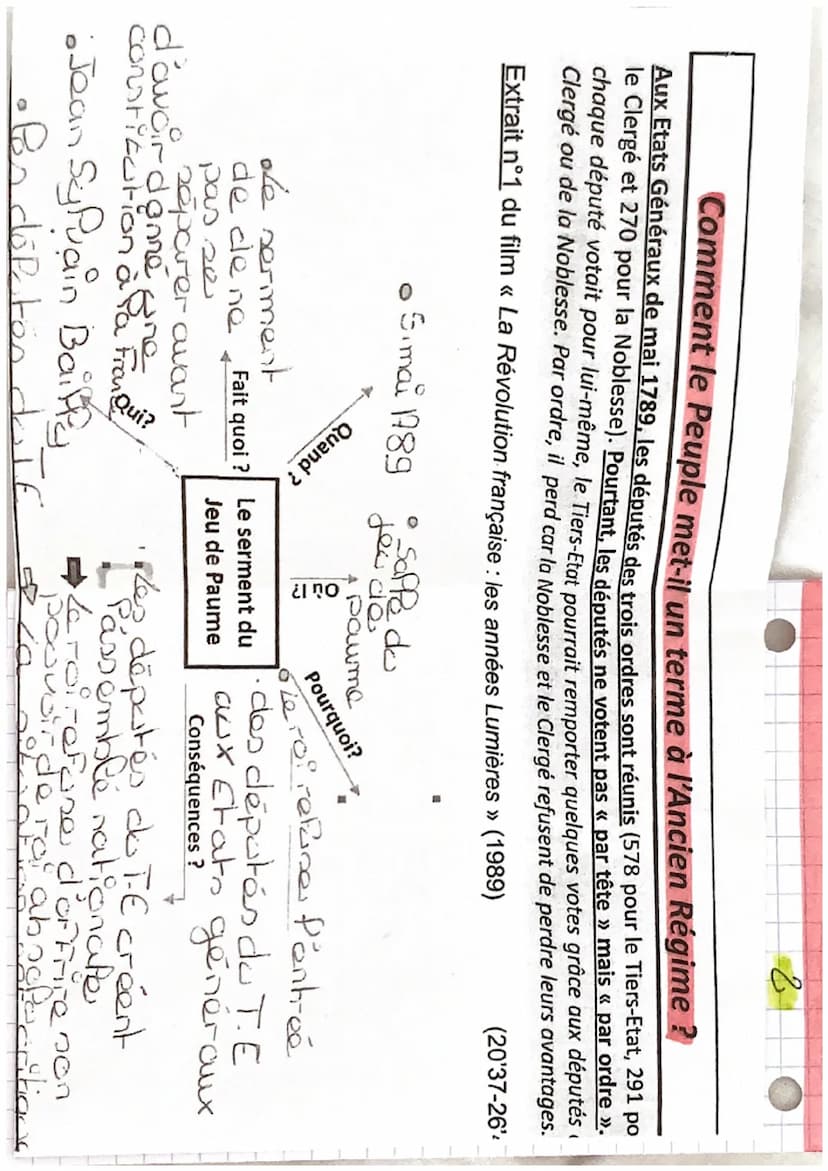 2
Comment le Peuple met-il un terme à l'Ancien Régime ?
Aux Etats Généraux de mai 1789, les députés des trois ordres sont réunis (578 pour le Tiers-Etat, 291 po
le Clergé et 270 pour la Noblesse). Pourtant, les députés ne votent pas « par tête » mais « par ordre ».
chaque député votait pour lui-même, le Tiers-Etat pourrait remporter quelques votes grâce aux députés
Clergé ou de la Noblesse. Par ordre, il perd car la Noblesse et le Clergé refusent de perdre leurs avantages.
Extrait n°1 du film « La Révolution française : les années Lumières » (1989) (20'37-26'
• 5 mai 1789
• Salle du
jeu de
paume
Quand ?
Où ?
Pourquoi?
• Le roi refuse l'entrée
. des députés du T.E
aux Etats généraux
Le serment du
Jeu de Paume
Fait quoi ?
• Le serment
de de ne
pas se
séparer avant
d'avoir donné une
constitution à la Fran
Qui?
• Jean Sylvain Bailly
• Les députés du T.E
Conséquences ?
. Les députés du T.E créent
l'assemblé nationale
Le roi refuse d'offrire son
pouvoir de roi absolu